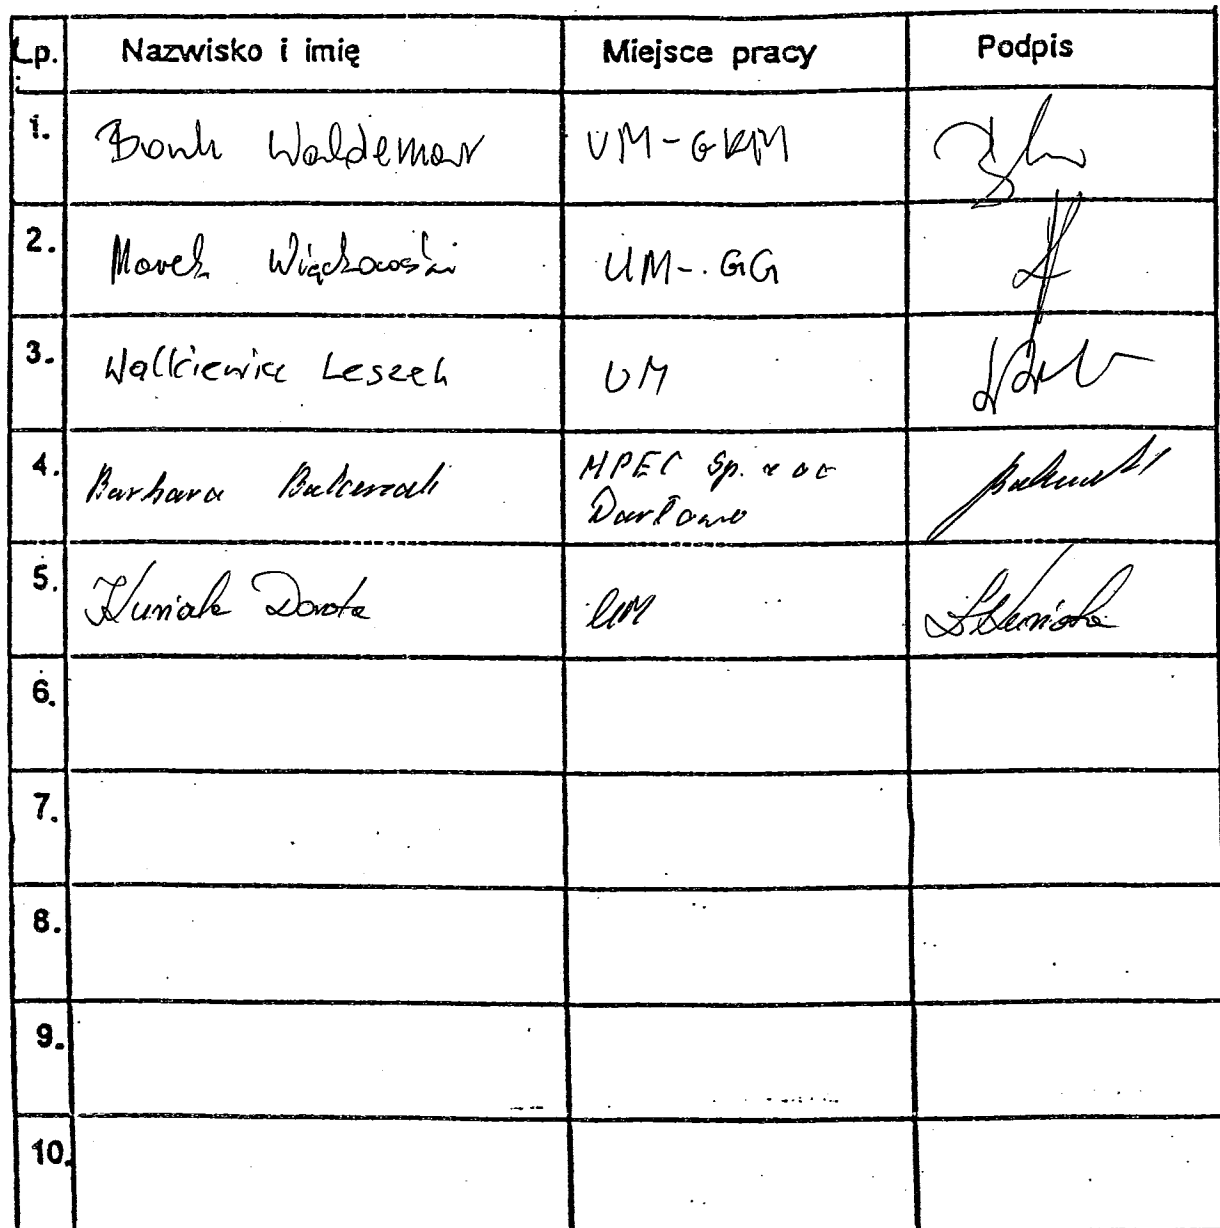 Lp. Nazwisko i imię Miejsce pracy Podpis
1. Bonk Waldemar UM-GKM
2. Marek Więckowski UM-GG
3. Walkiewicz Leszek UM
4. Barbara Balcerzak MPEC Sp. z o o
Darłowo
5. Kuniak Dorota UM
6.
7.
8.
9.
10.